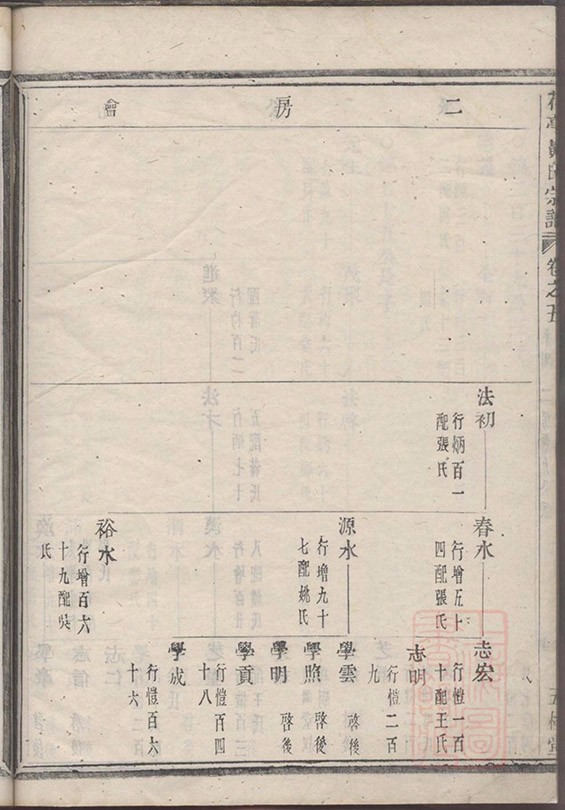 花亭黃氏宗譜
卷之五
二房會
法初
行炳百一
配張氏
春水
行增五十
四配張氏
志宏
行愷一百
十配王氏
志明
行愷二百
九
源水
行增九十
七配姚氏
學雲
啓後
學照
啓後
學明
啓後
學貢
行愷百四
十八
學成
行愷百六
十六
裕水
行增百六
十九配吳
氏